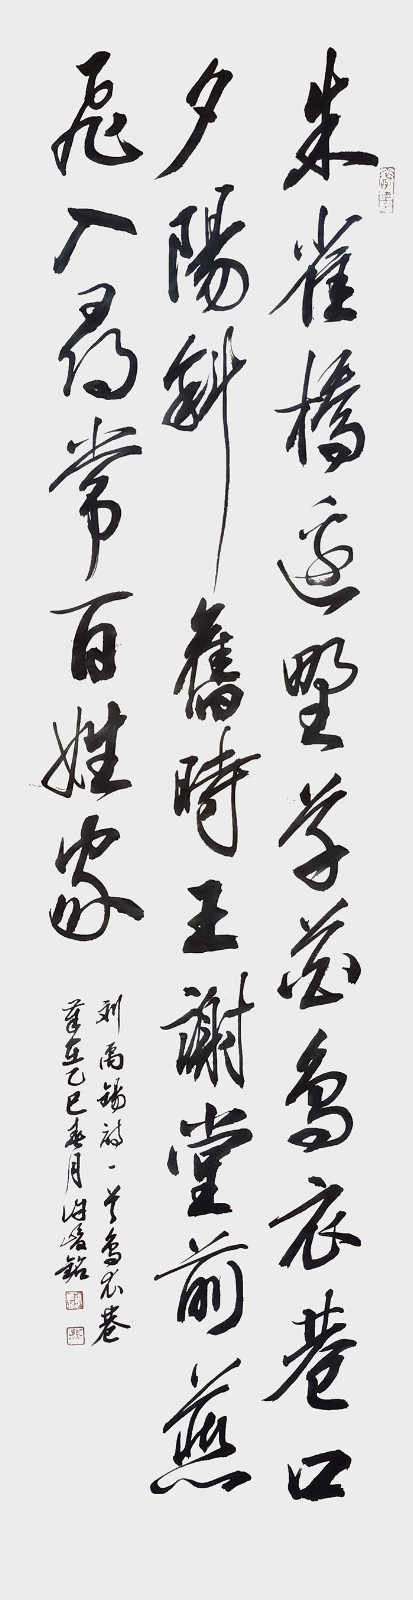 朱雀橋邊野草花烏衣巷口
夕陽斜舊時王謝堂前燕
飛入尋常百姓家
劉禹錫詩一首烏衣巷
筆在乙巳春月